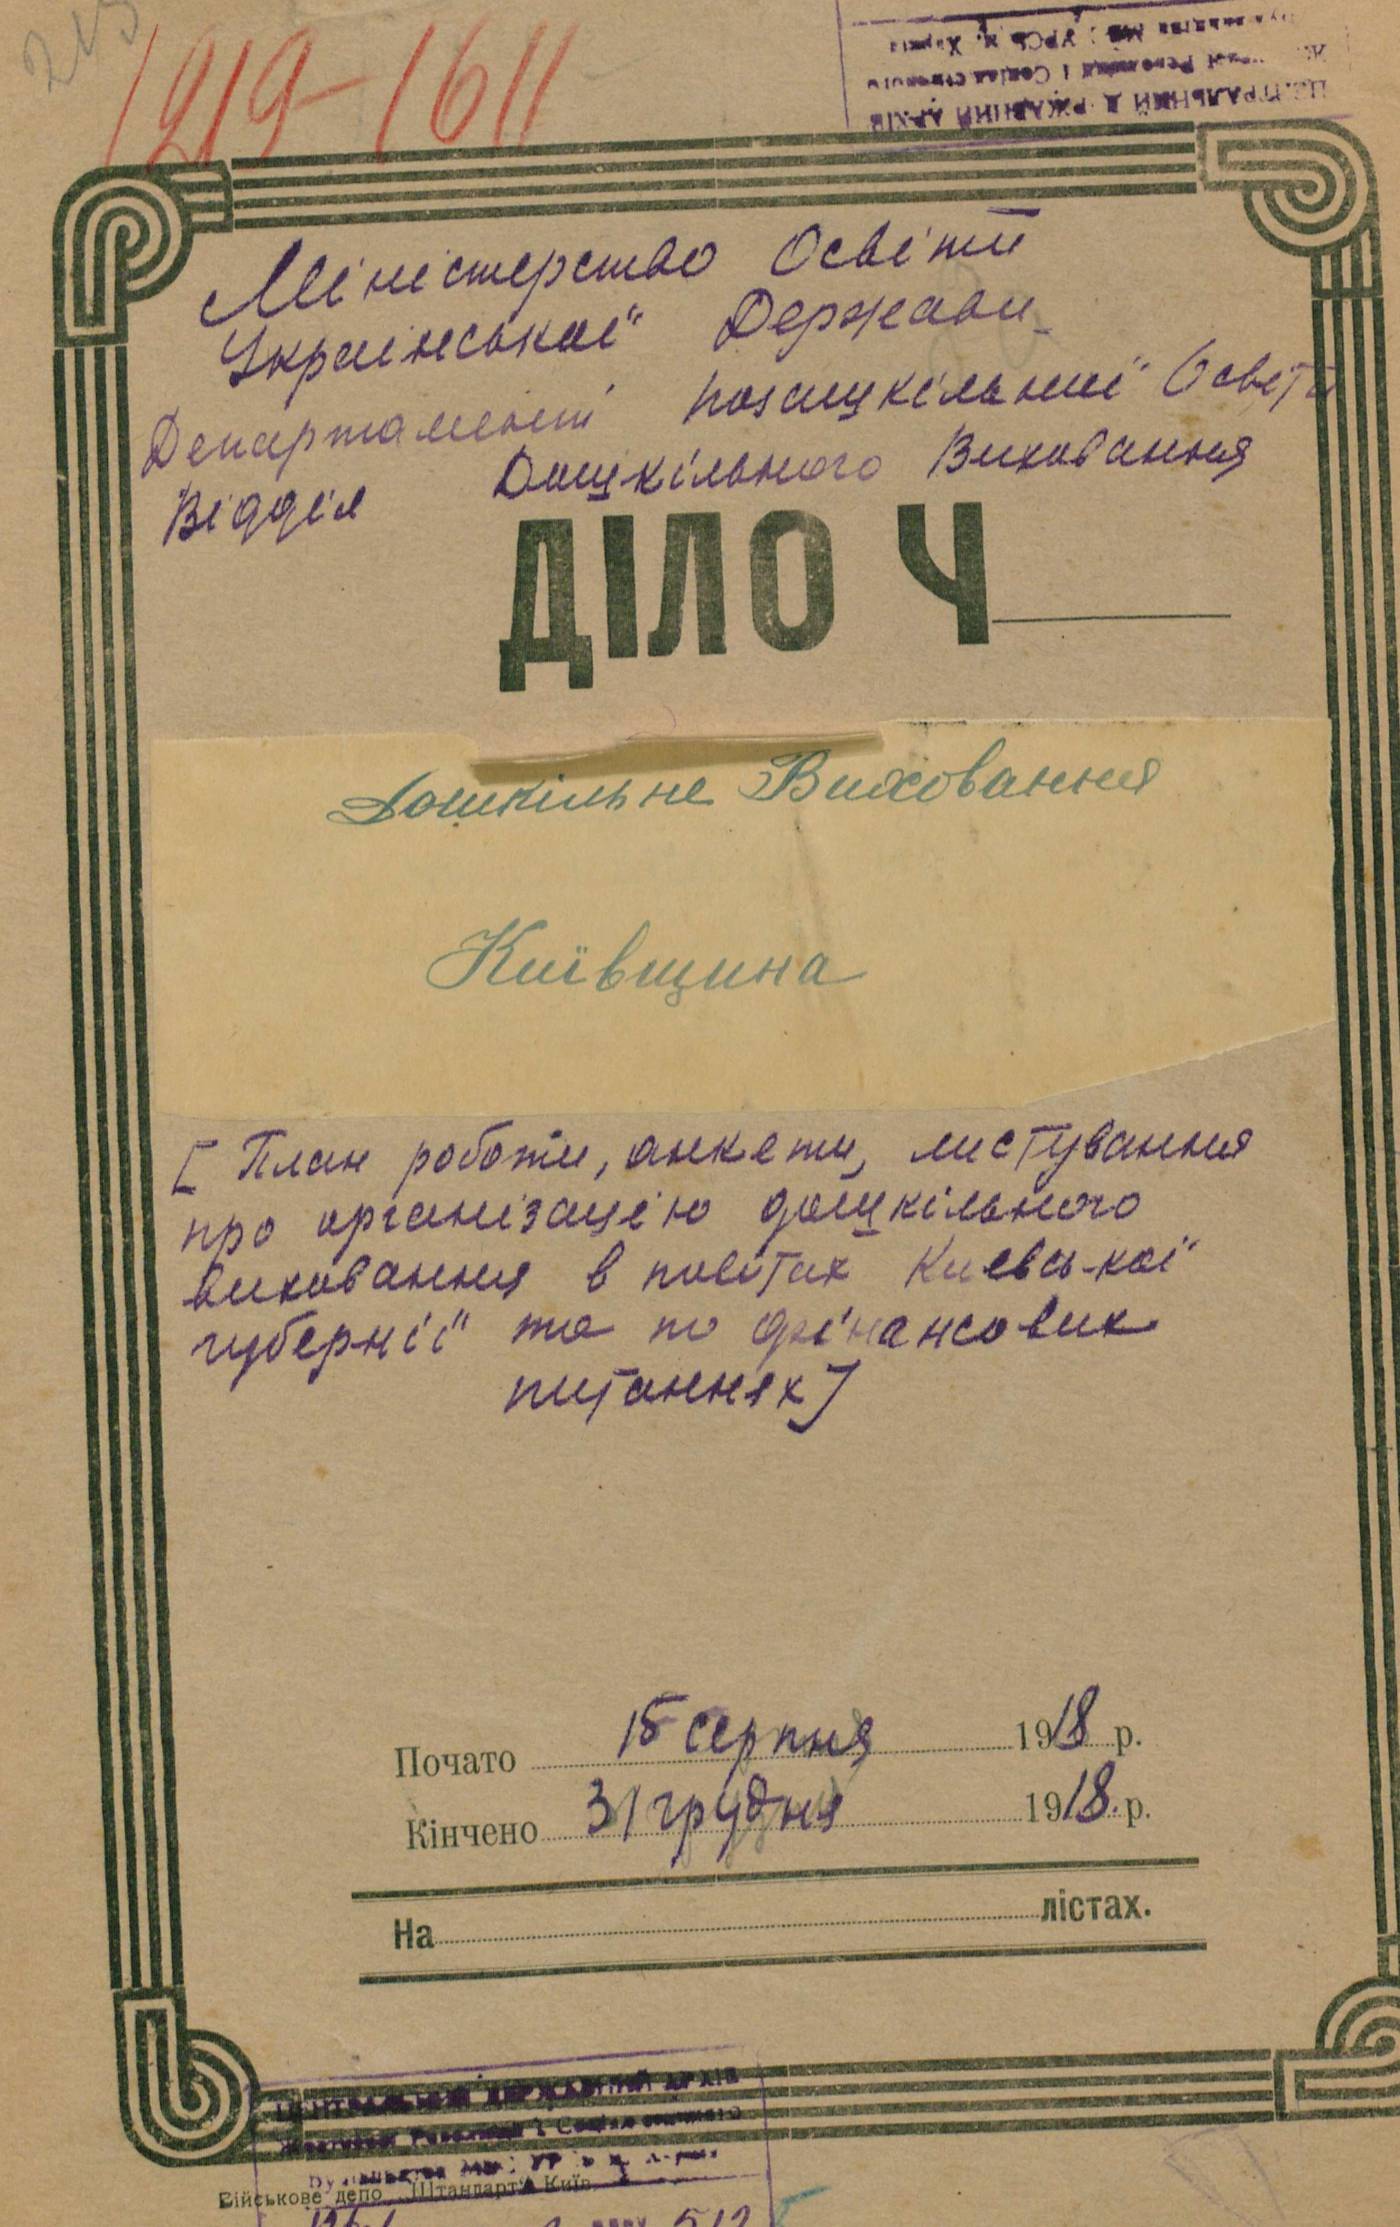 215
1919-1611
ЦЕНТРАЛЬНИЙ ДЕРЖАВНИЙ АРХІВ
Революції і Соціалістичного
УРСР м. Харків
Міністерство Освіти
Української Держави
Департамент позашкільної Освіти
Відділ Дошкільного Виховання
ДІЛО Ч
Дошкільне Виховання
Київщина
[ План роботи, анкети, листування
про організацію дошкільного
виховання в повітах Киевської
губернії та по фінансових
питаннях]
Почато 15 серпня 1918 р.
Кінчено 31 грудня 1918. р.
На лістах.
ЦЕНТРАЛЬНИЙ ДЕРЖАВНИЙ АРХІВ
Жовтневої Революції і Соціалістичного
Будівництва
Військове депо „Штандарт“ Київ
512